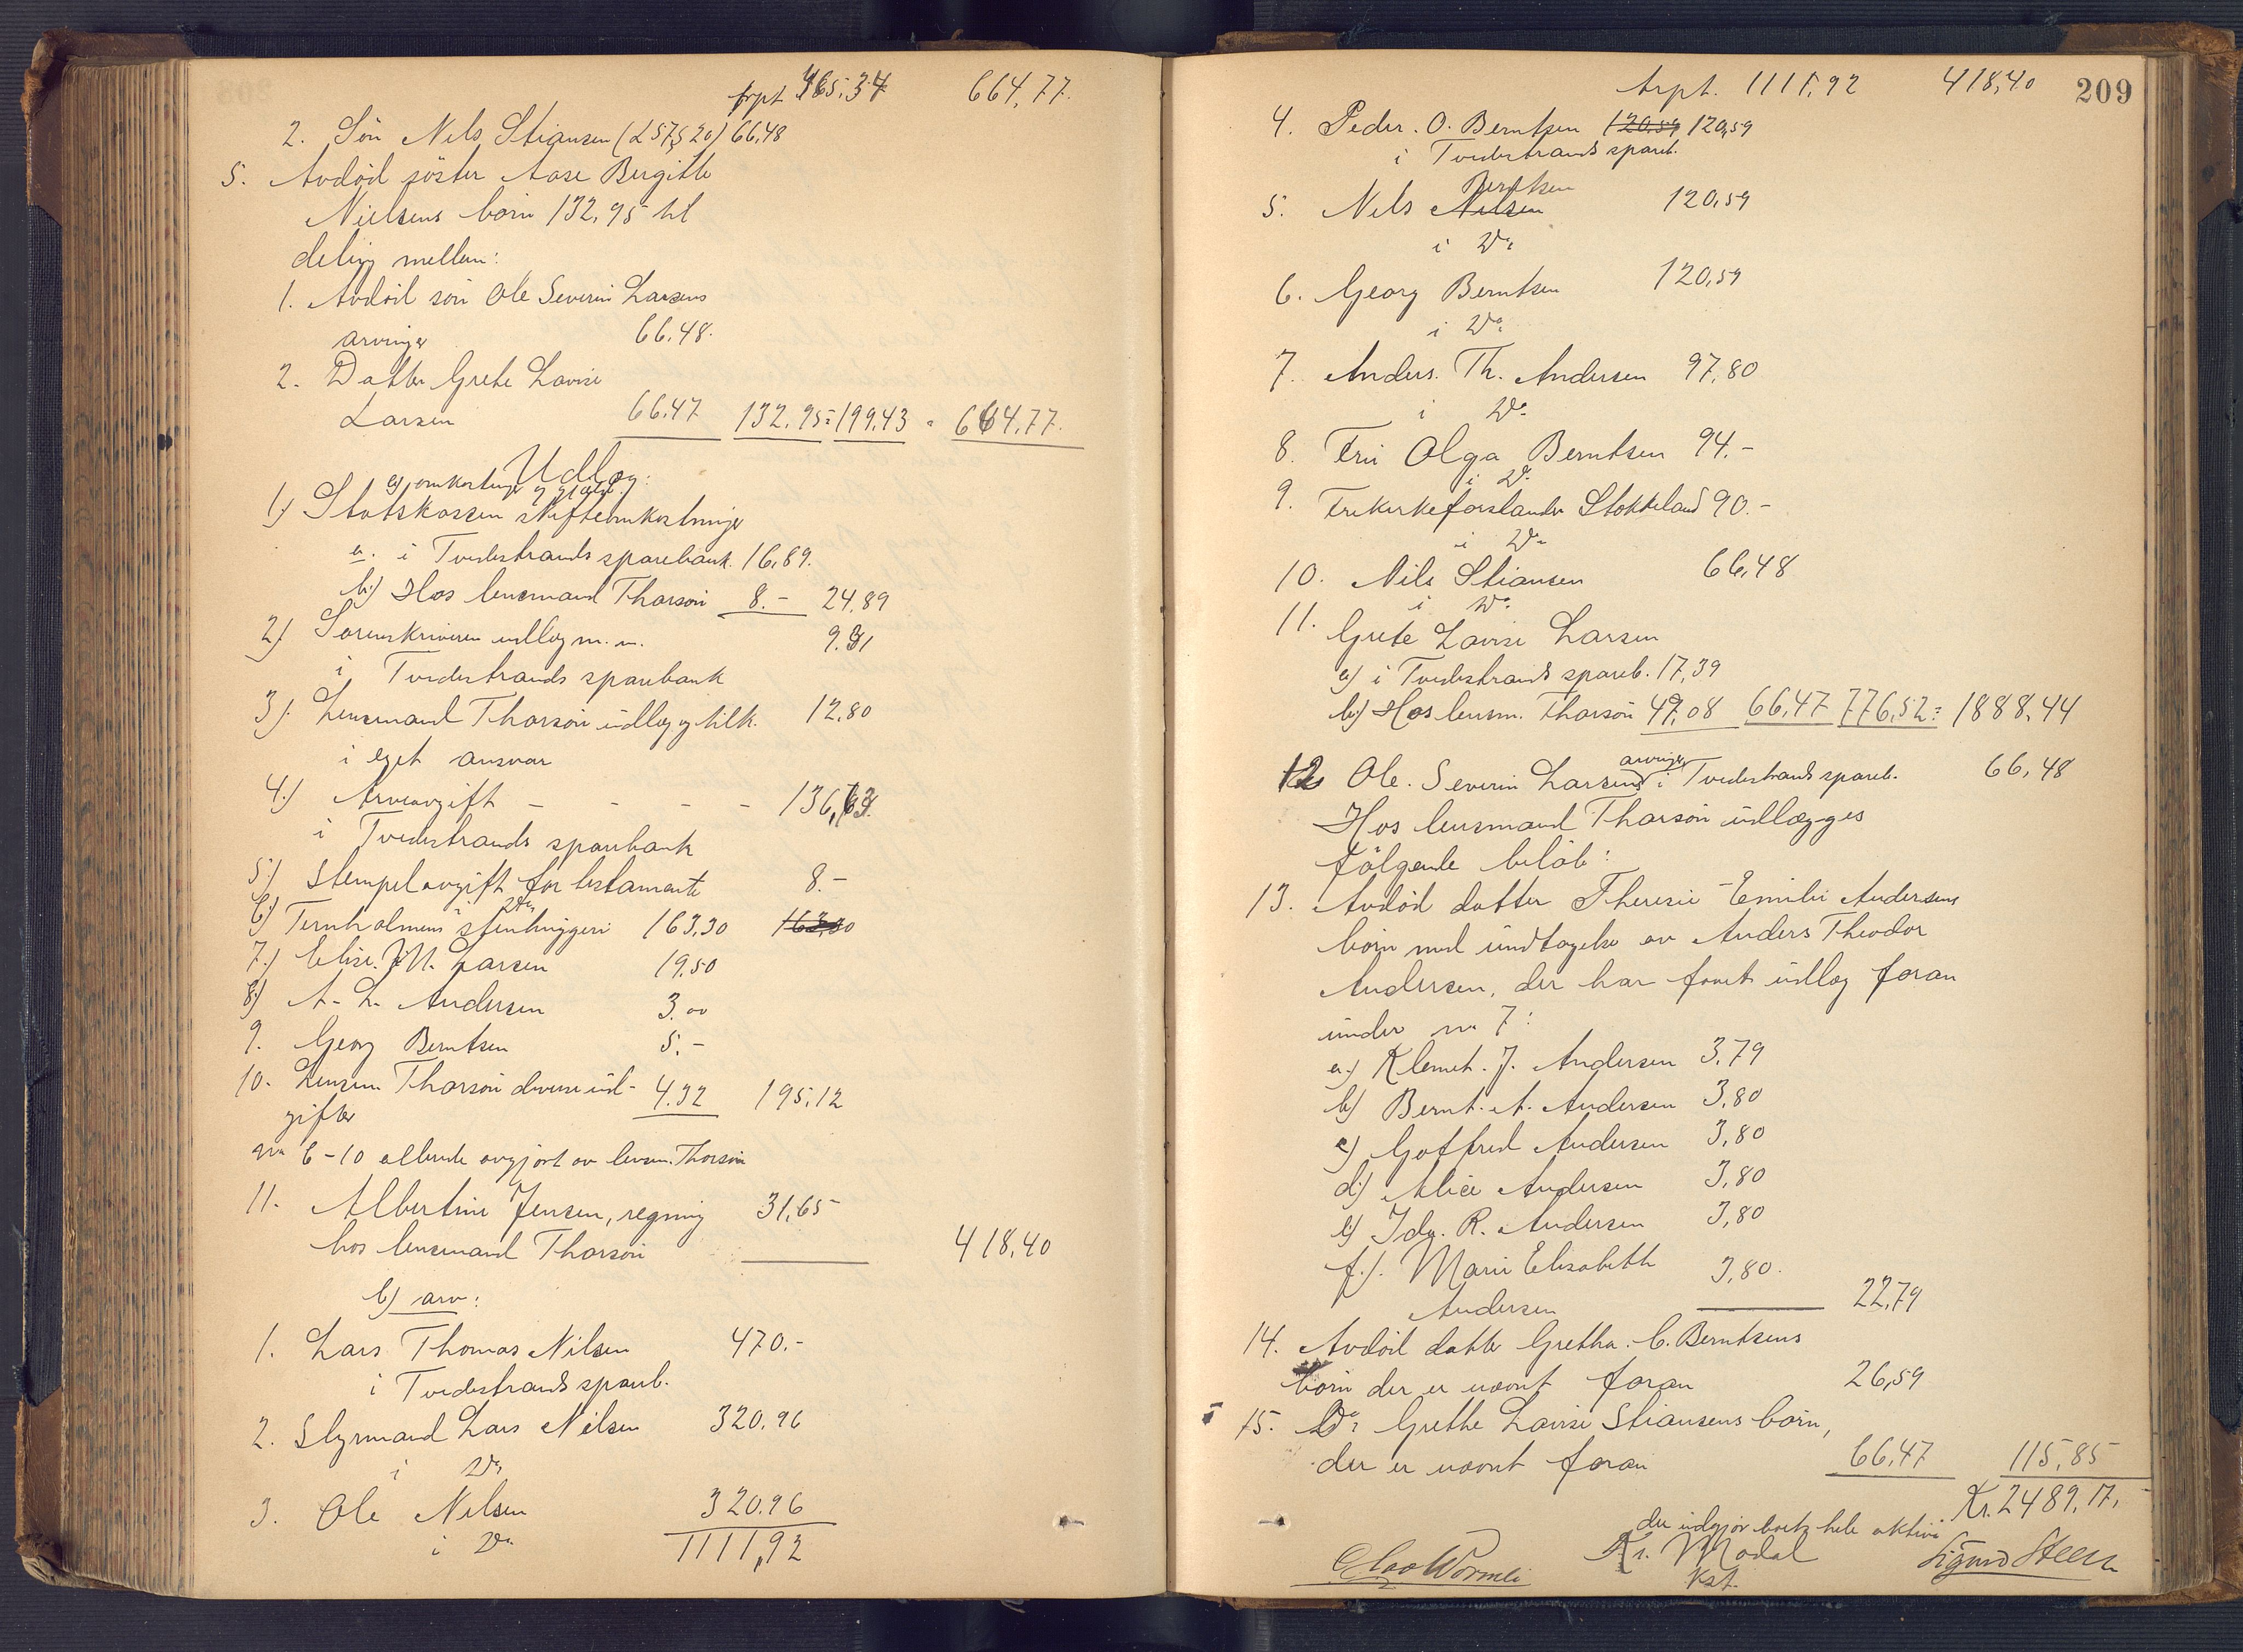 frpt 465,34 664,77.
2. Sön Nils Stiansen (L 57 § 20) 66,48
5. Avdöd söster Aase Bergitte
Nielsens börn 132,95 til
deling mellem:
1. Avdöd sön Ole Severin Larsens
arvinger 66,48.
2. Datter Grete Lovise
Larsen 66,47 132,95 = 199,43 = 664,77.
Udlæg:
a) omkostninger og gjæld:
1.) Statskassen skifteomkostninger
a. i Tvedestrands sparebank. 16,89.
b.) Hos lensmand Tharson 8.- 24,89
2.) Sorenskriveren utlæg m.m. 9.31
i Tvedestrands sparebank
3.) Lensmand Tharson udlæg og tilk. 12,80
i eget ansvar
4.) Arveavgift - - - - 136,63
i Tvedestrands sparebank
5.) Stempelavgift for testamente 8.-
6.) Ternholmens stenhuggeri 163,30 163,30
7.) Elise. M. Larsen 19.50
8.) A. L. Andersen 3.00
9. Georg Berntsen 5.-
10. Lensm. Tharson diverse ud- 4.32 195,12
gifter
no 6-10 allerede avgjort av lensm. Tharson
11. Albertine Jensen, regning 31,65
hos lensmand Tharson 418,40
b) arv:
1. Lars Thomas Nilsen 470.-
i Tvedestrands spareb.
2. Styrmand Lars Nilsen 320.96
i Do
3. Ole Nilsen 320.96
i Do 1111,92
209
Trpt. 1111,92 418,40
4. Peder. O. Berntsen 120,59 120,59
i Tvedestrands spareb.
Berntsen
5. Nils Nilsen 120,59
i Do
6. Georg Berntsen 120,59
i Do
7. Anders. Th. Andersen 97,80
i Do
8. Fru Olga Berntsen 94.-
i Do
9. Frikirkeforstander Stokkeland 90.-
i Do
10. Nils Stiansen 66,48
i Do
11. Grete Lovise Larsen
a) i Tvedestrands spareb. 17,39
b.) Hos lensm. Tharson 49,08 66,47 776,52 = 1888,44
12 Ole. Severin Larsens arvinger i Tvedestrands spareb. 66,48
Hos lensmand Tharson udlægges
følgende beløb:
13. Avdöd datter Theresie Emilie Andersens
börn med undtagelse av Anders Theodor
Andersen, der har faaet udlæg foran
under no 7:
a.) Klemet. J. Andersen 3,79
b) Bernt. A. Andersen 3,80
c) Gotfred Andersen 3,80
d.) Alice Andersen 3,80
e) Ida. R. Andersen 3,80
f.). Marie Elisabeth 3,80.
Andersen 22,79
14. Avdöd datter Gretha. C. Berntsens
börn der er nævnt foran 26,59
15. Do Grethe Lovise Stiansens börn,
der er nævnt foran 66,47 115,85
Kr. 2489,17,
der udgjør boets hele aktiva
Olav Wormli Kr. Modal Sigurd Steen
Kst.